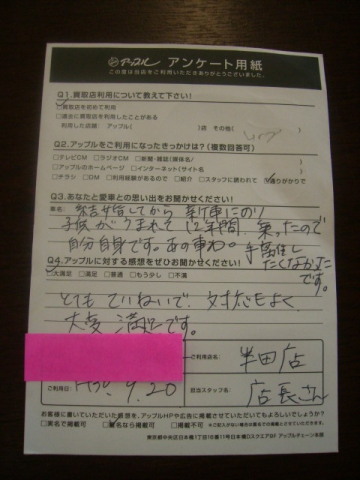 アップル アンケート用紙
この度は当店をご利用いただきありがとうございました。
Q1.買取店利用について教えて下さい!
買取店を初めて利用
過去に買取店を利用したことがある
利用した店舗: アップル( )店 その他(
Q2.アップルをご利用になったきっかけは?(複数回答可)
テレビCM ラジオCM 新聞・雑誌(媒体名/ )
アップルのホームページ インターネット(サイト名 )
チラシ DM 利用経験があるので 紹介 スタッフに誘われて 通りがかりで
Q3.あなたと愛車との思い出をお聞かせください!
車名: 結婚してから 新車にのり
子供がうまれて 12年間 乗ったので
自分自身です。あの車わ。手ばなし
たくなかった
です。
Q4.アップルに対する感想をぜひお聞かせください!
大満足 満足 普通 もう少し 不満
とてもていねいで、対応もよく
大変 満足です。
ご利用店名: 半田店
ご利用日: H30.9.20
担当スタッフ名: 店長さん
お客様に書いていただいた感想を、アップルHPや広告に掲載させていただいてもよろしいでしょうか?
実名で掲載可 匿名なら掲載可 掲載不可
東京都中央区日本橋1丁目16番11号日本橋Dスクエア8F アップルチェーン本部